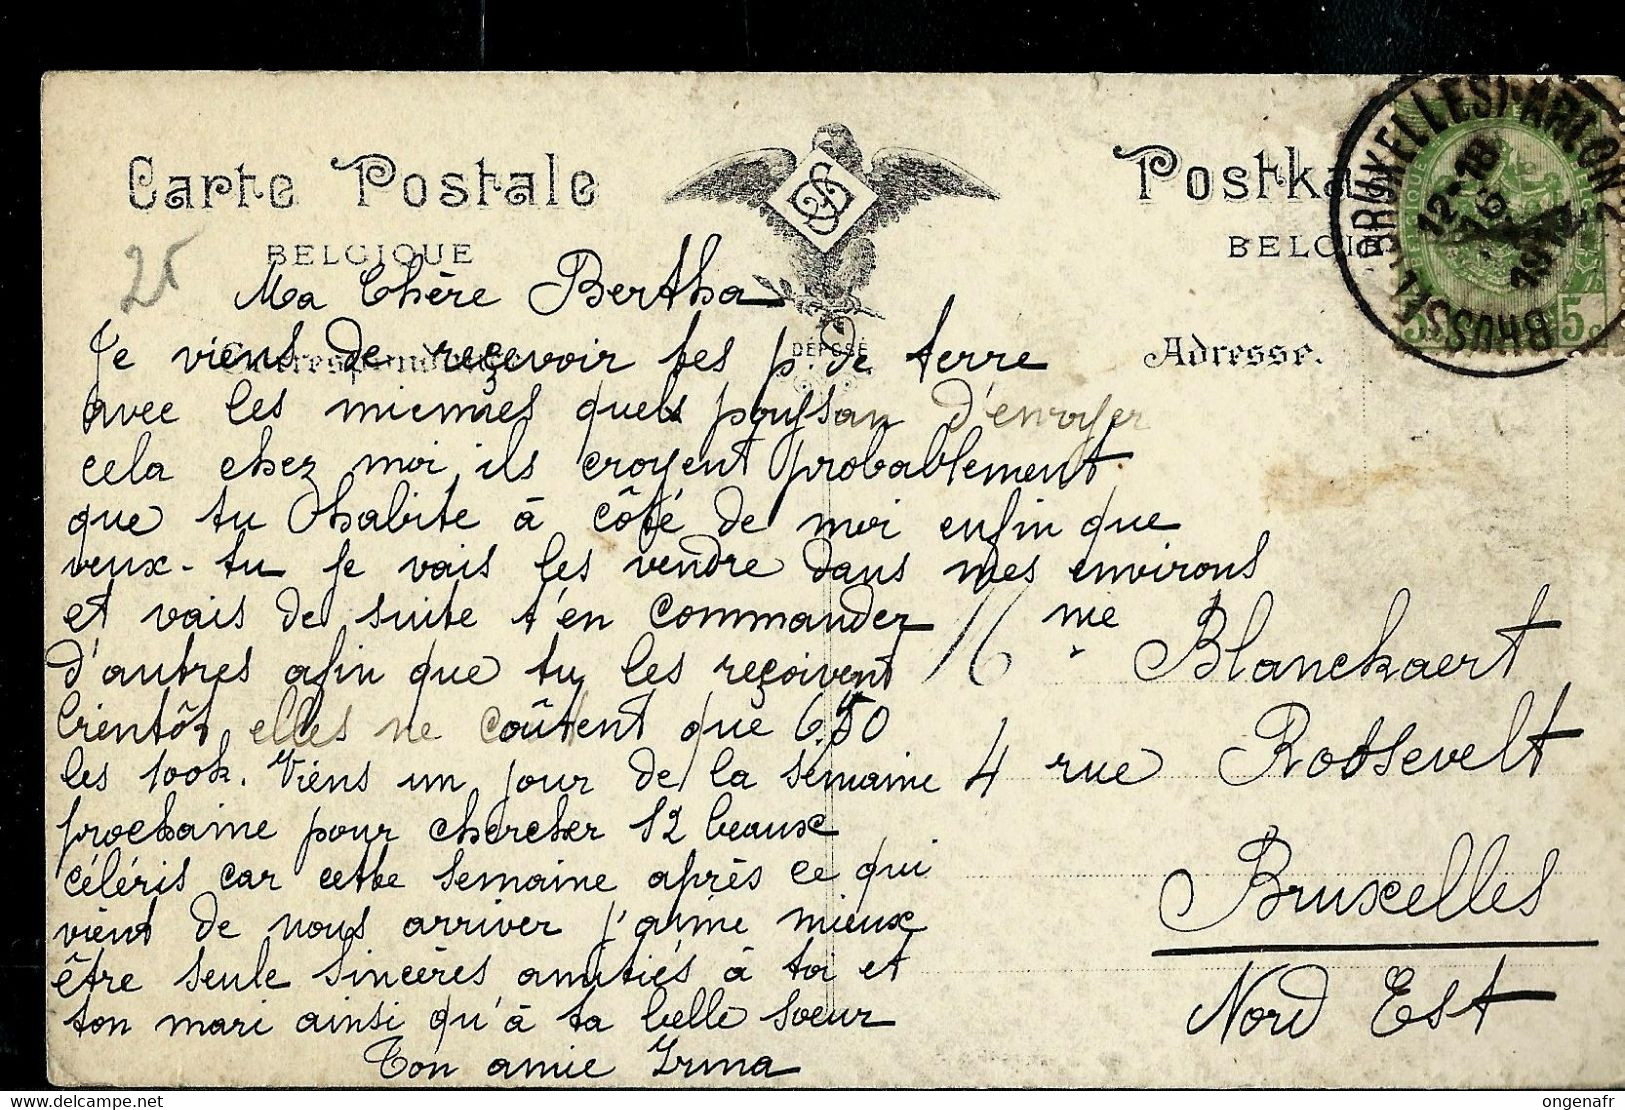 Carte Postale
Postka
BELGIQUE
BELGIE
25
DÉPOSÉ
Correspondance
Adresse.
BRUXELLES (ARLON)
12-18
5 5c
Ma Chère Bertha
Je viens de reçevoir tes p. de terre
avec les miennes quels poyssan d'envoyer
cela chez moi, ils croyent probablement
que tu habite à côté de moi enfin que
veux-tu je vais les vendre dans mes environs
et vais de suite t'en commander
d'autres afin que tu les reçoivent
bientôt elles ne coûtent que 6,50
les 100k. Viens un jour de la semaine
prochaine pour chercher 12 beaux
céléris car cette semaine après ce qui
vient de nous arriver j'aime mieux
être seule sincères amitiés à toi et
ton mari ainsi qu'à ta belle soeur
Ton amie Irma
me
Blanckaert
4 rue Roosevelt
Bruxelles
Nord Est
delcampe.net
ongenafr